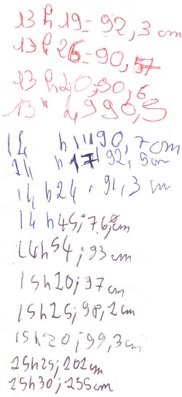 13h19=92,3 cm
13h26=90,57
13h20,90,6
13h 2990,5
14 h11190,7cm
14 h1792,9cm
14h24:91,3 cm
14h45;76,9cm
14h54;93cm
15h20;97cm
15h25;98,2cm
15h20;99,3cm
25h25;202cm
25h30;235cm